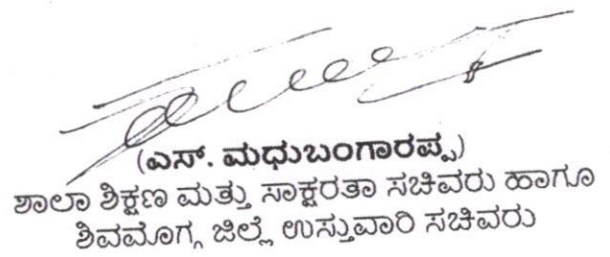 (ಎಸ್. ಮಧುಬಂಗಾರಪ್ಪ)
ಶಾಲಾ ಶಿಕ್ಷಣ ಮತ್ತು ಸಾಕ್ಷರತಾ ಸಚಿವರು ಹಾಗೂ
ಶಿವಮೊಗ್ಗ ಜಿಲ್ಲೆ ಉಸ್ತುವಾರಿ ಸಚಿವರು